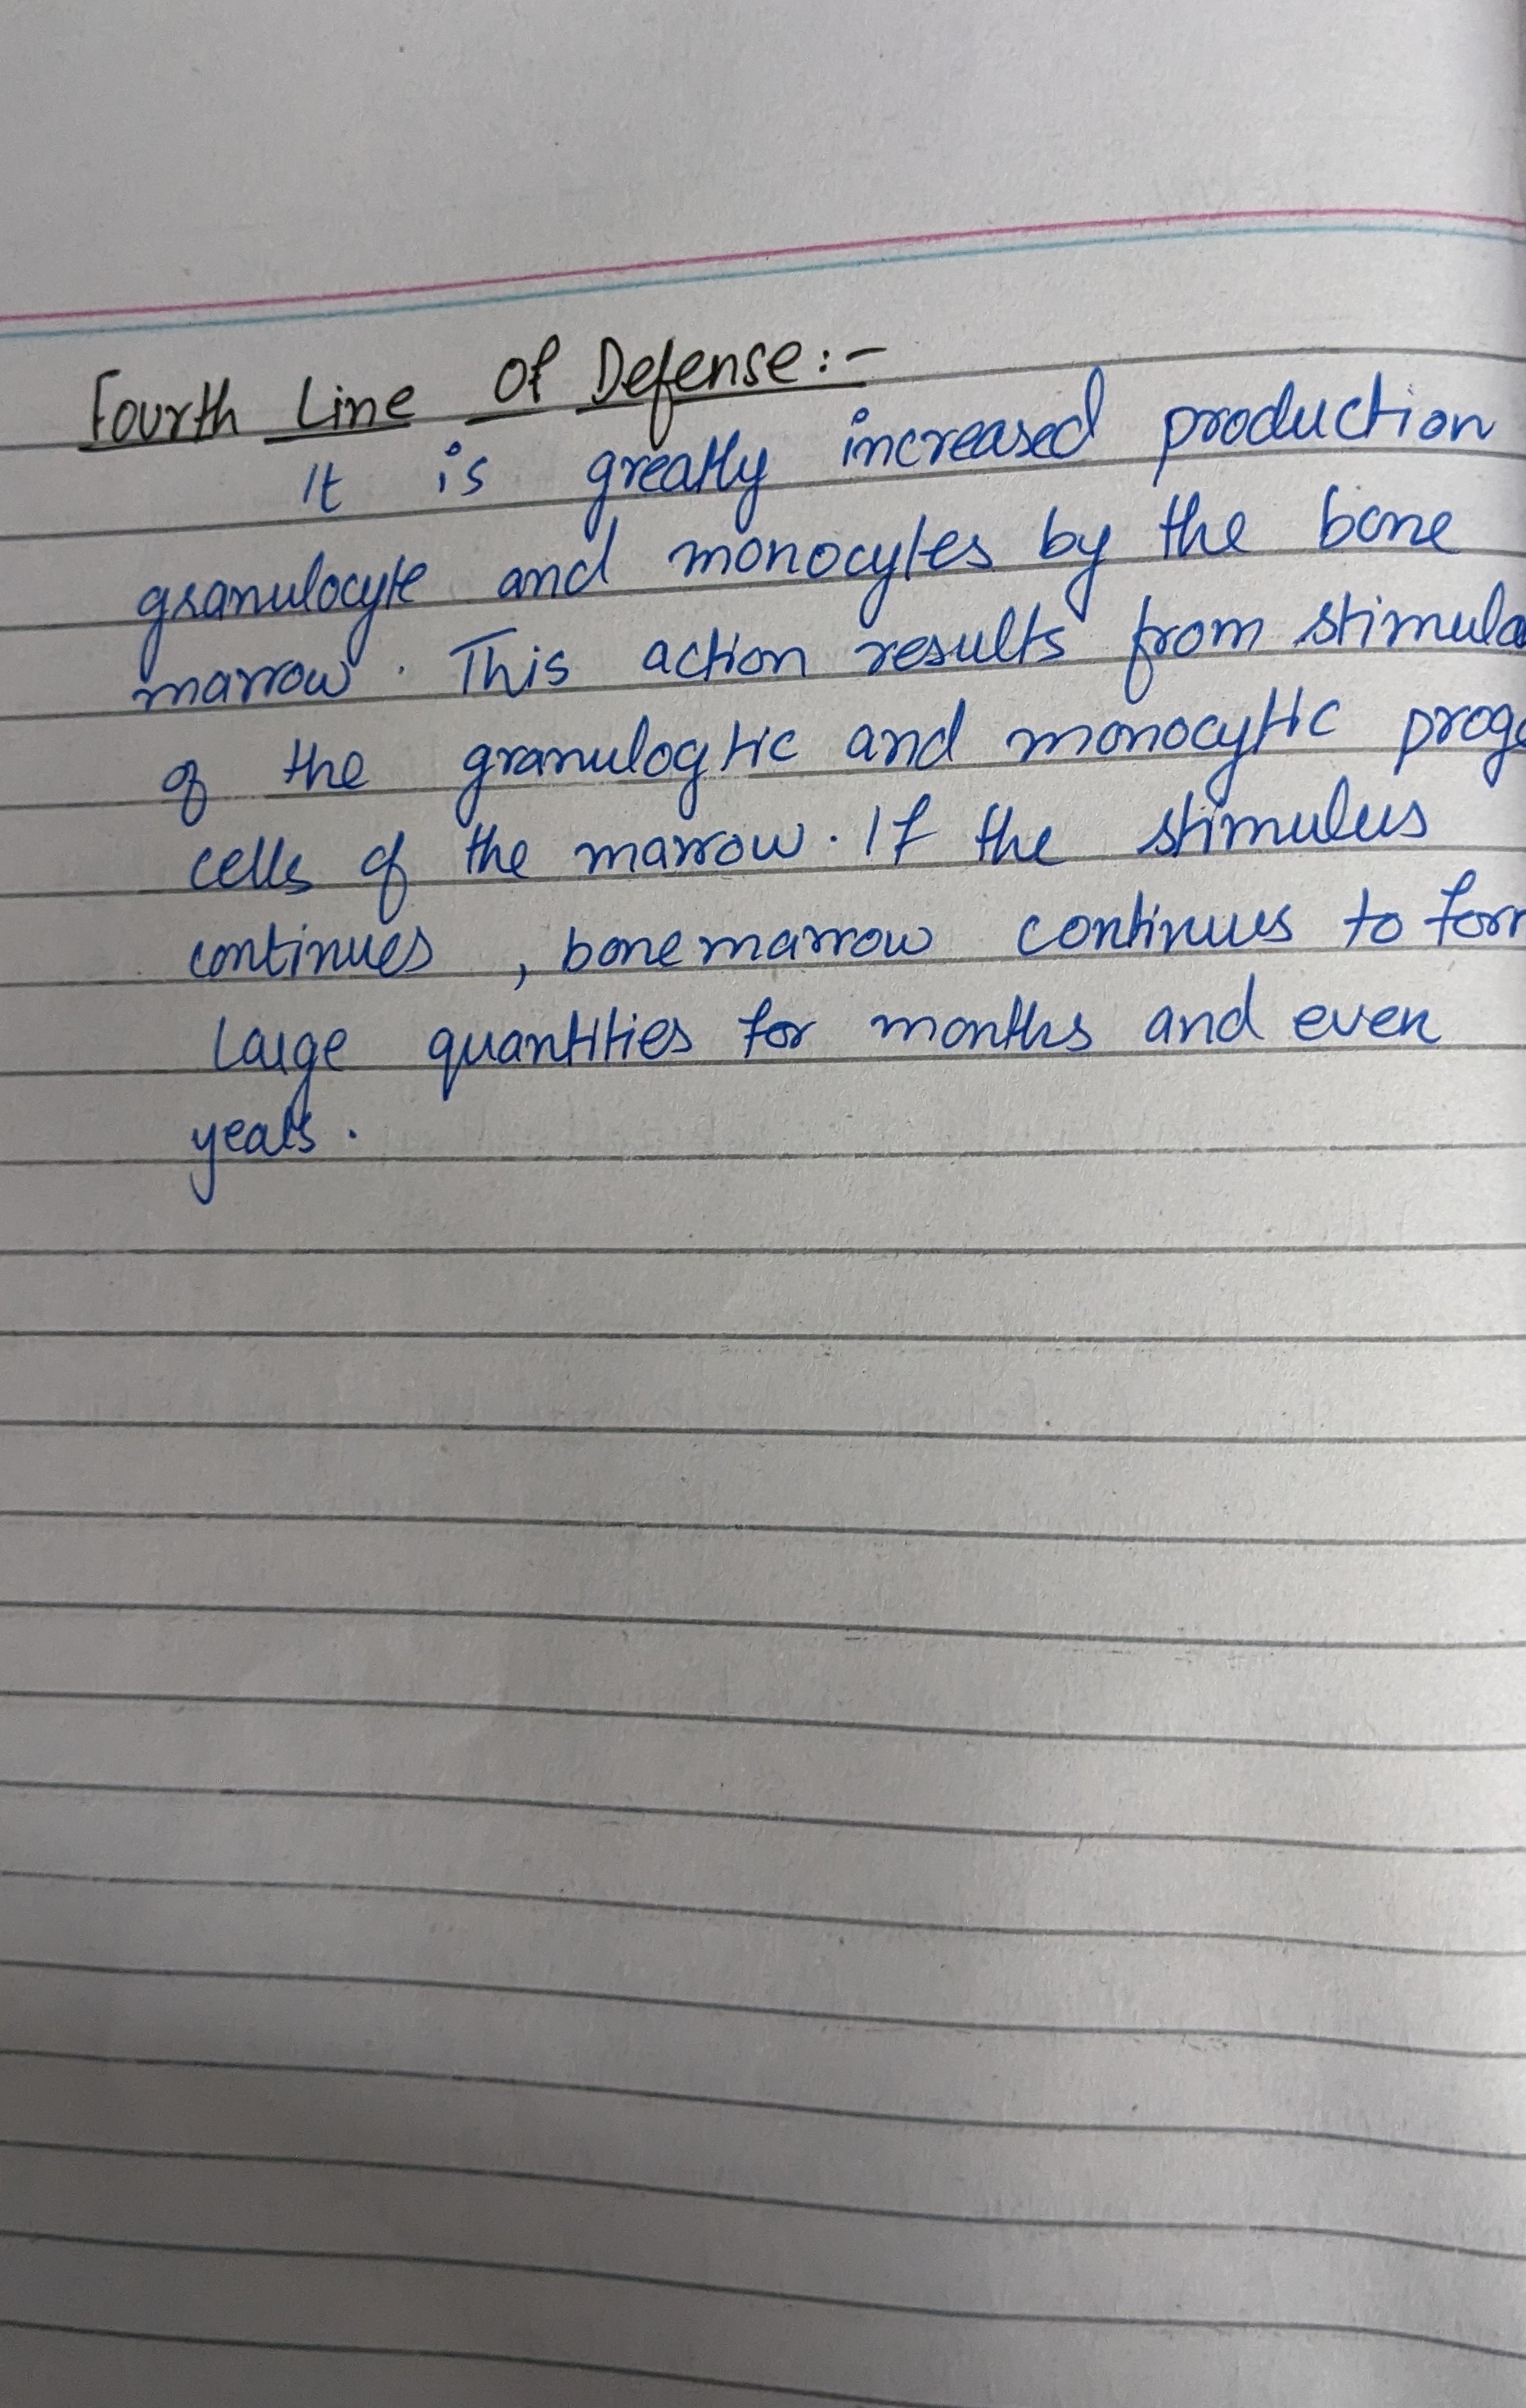 Fourth Line Of Defense:-
It is greatly increased production
granulocyte and monocytes by the bone
marrow. This action results from stimula
of the granulogtic and monocytic proge
cells of the marrow. If the stimulus
continues, bone marrow continues to form
large quantities for months and even
years.